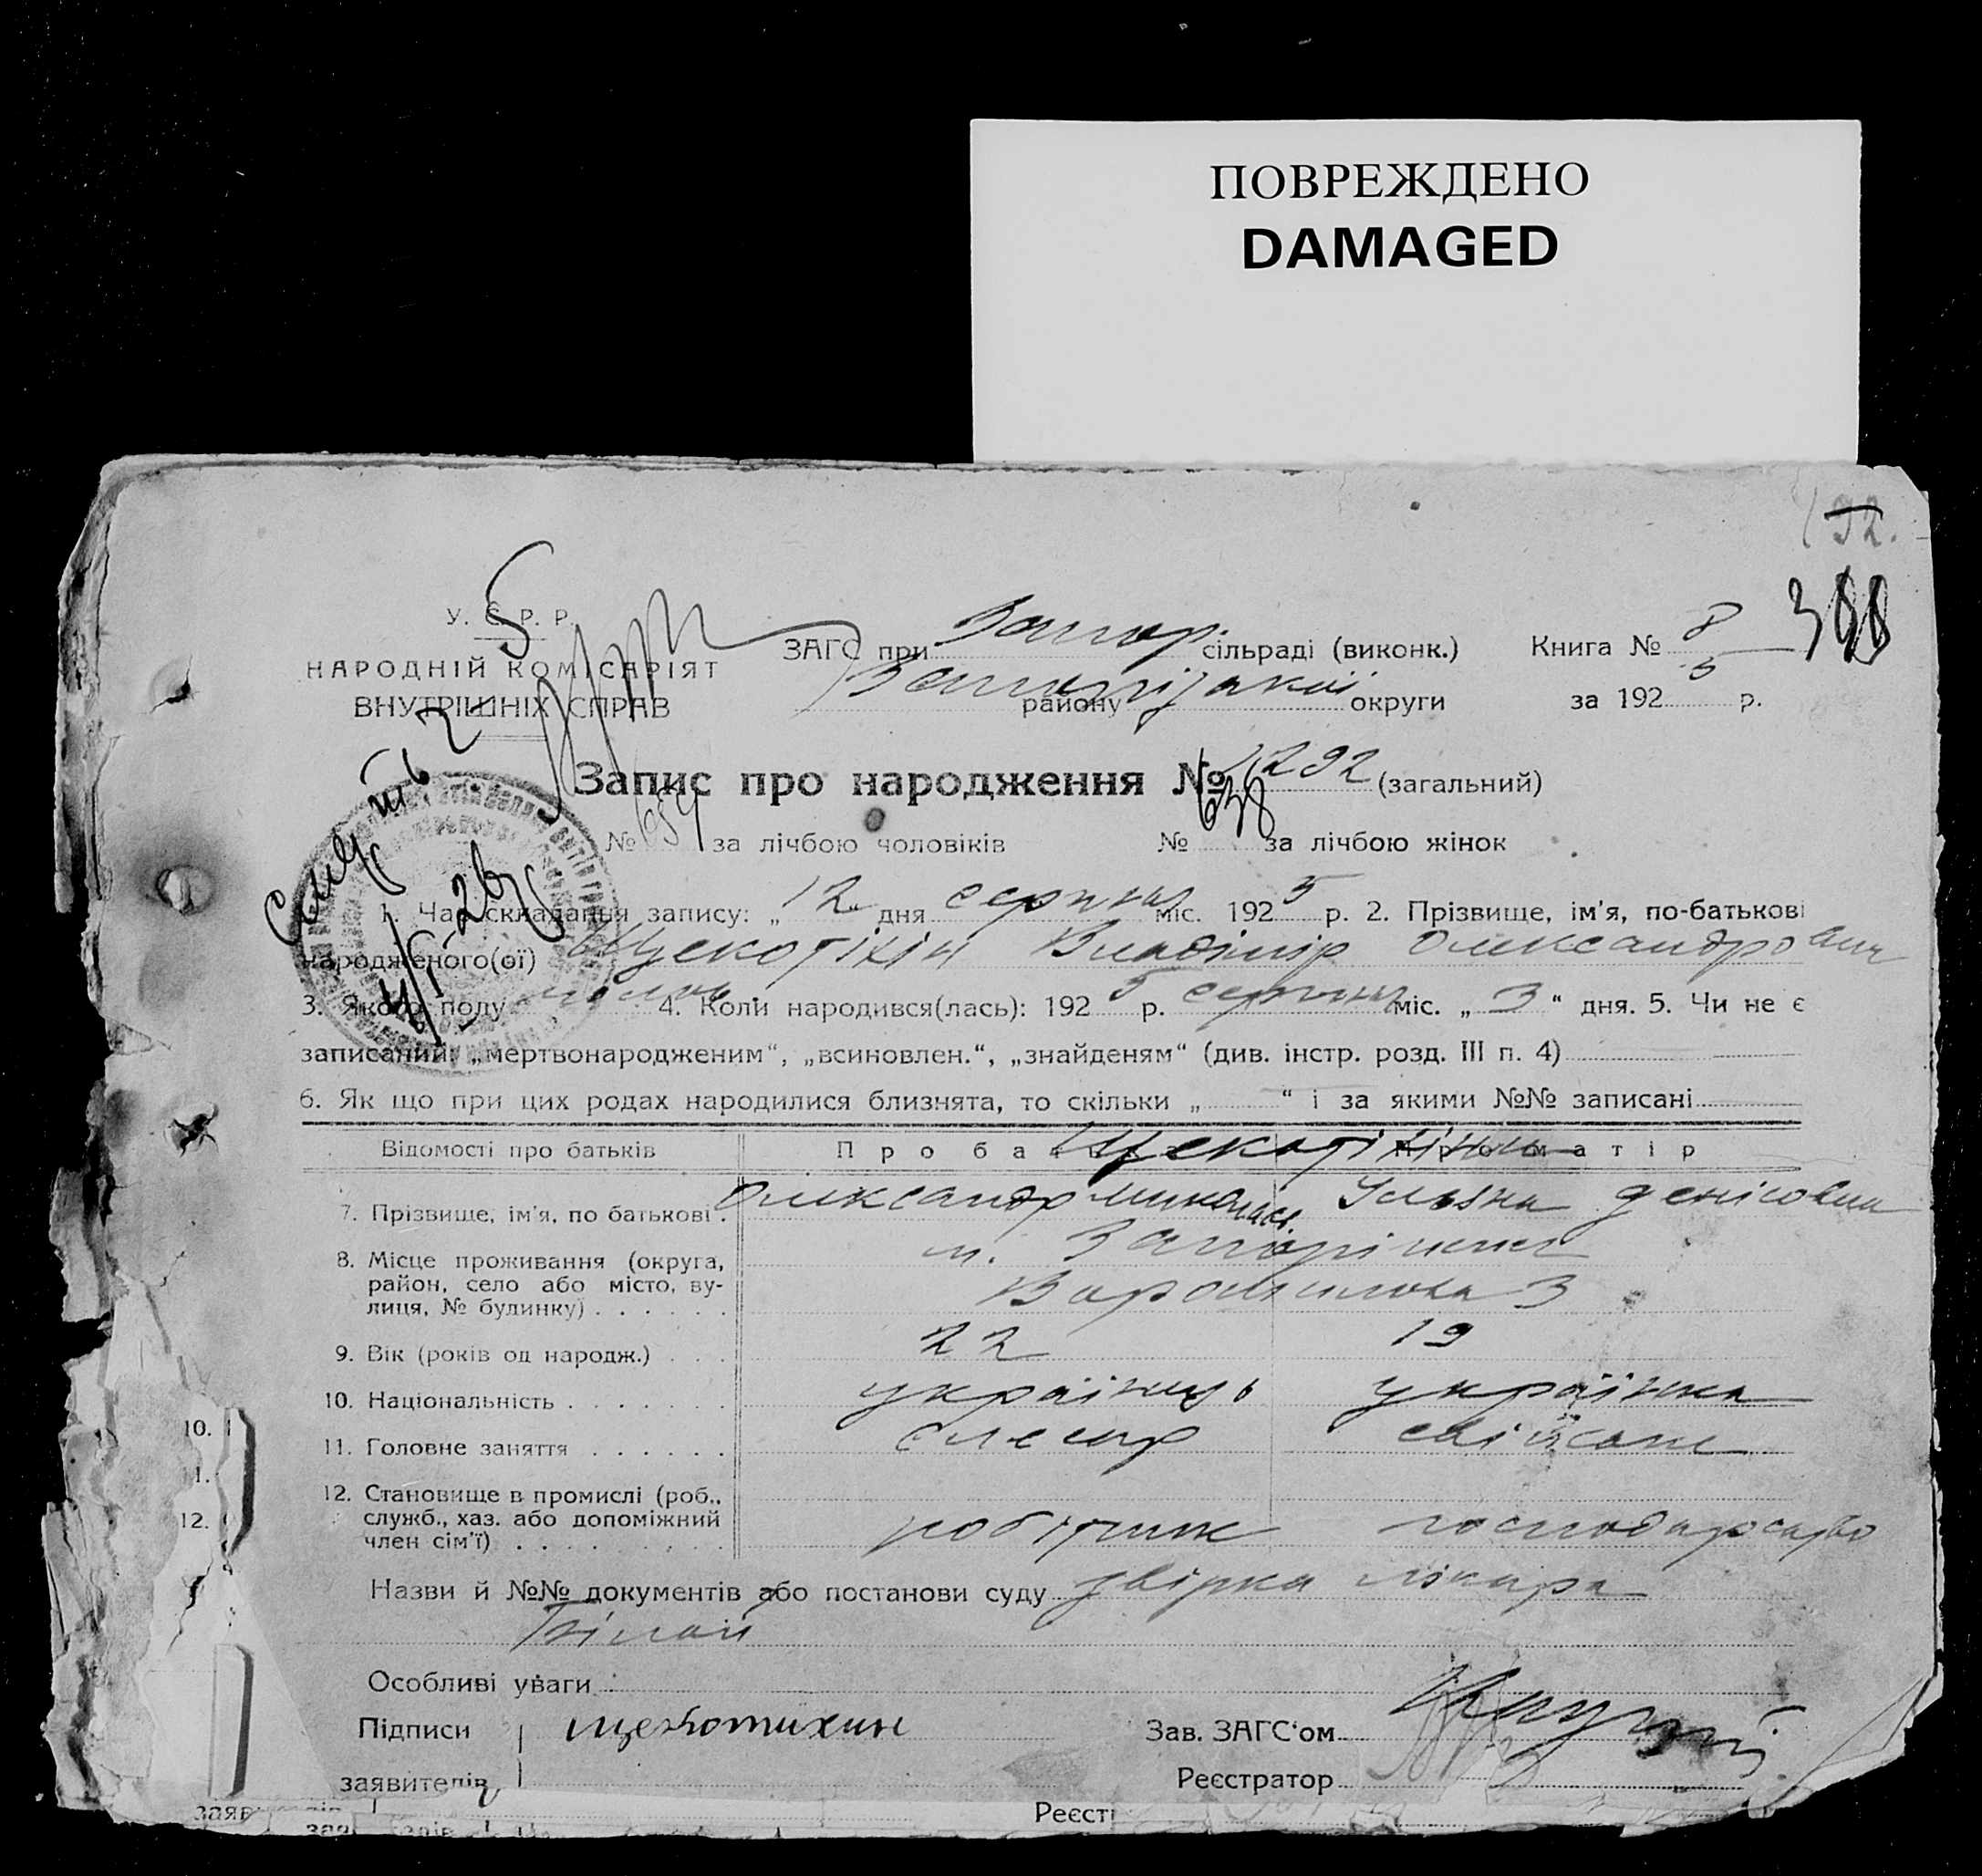 ПОВРЕЖДЕНО
DAMAGED
192.
388
У. С. Р. Р.
НАРОДНІЙ КОМІСАРІЯТ
ВНУТРІШНІХ СПРАВ
ЗАГС при Запор. сільраді (виконк.)
Книга № 8
району Запорізької округи
за 1925 р.
Запис про народження № 1292 (загальний)
№ 654 за лічбою чоловіків № 638 за лічбою жінок
1. Час складання запису: „12“ дня серпня міс. 1925 р. 2. Прізвище, ім'я, по-батькові
народженого(ої) Щекотіхін Владімір Олександрович
3. Якого полу чолов. 4. Коли народився(лась): 1925 р. серпня міс. „3“ дня. 5. Чи не є
записаний: „мертвонародженим“, „всиновлен.“, „знайденям“ (див. інстр. розд. III п. 4)
6. Як що при цих родах народилися близнята, то скільки „ “ і за якими №№ записані
Відомості про батьків Про батька Про матір
Щекотіхіни
7. Прізвище, ім'я, по батькові . Олександр Миколаєв. Ульяна Денісовна
8. Місце проживання (округа, м. Запоріжжя
район, село або місто, ву- Ворошилова 3
лиця, № будинку) . . . . . .
9. Вік (років од народж.) . . . 22 19
10. Національність . . . . . . . українець українка
11. Головне заняття . . . . . . слесар хатнє
12. Становище в промислі (роб.,
служб., хаз. або допоміжний
член сім'ї) . . . . . . . . . робітник господарство
Назви й №№ документів або постанови суду звірка лікаря
Особливі уваги
Підписи щекотихин
Зав. ЗАГС'ом
заявителів
Реєстратор
10.
1.
12.
Реєст